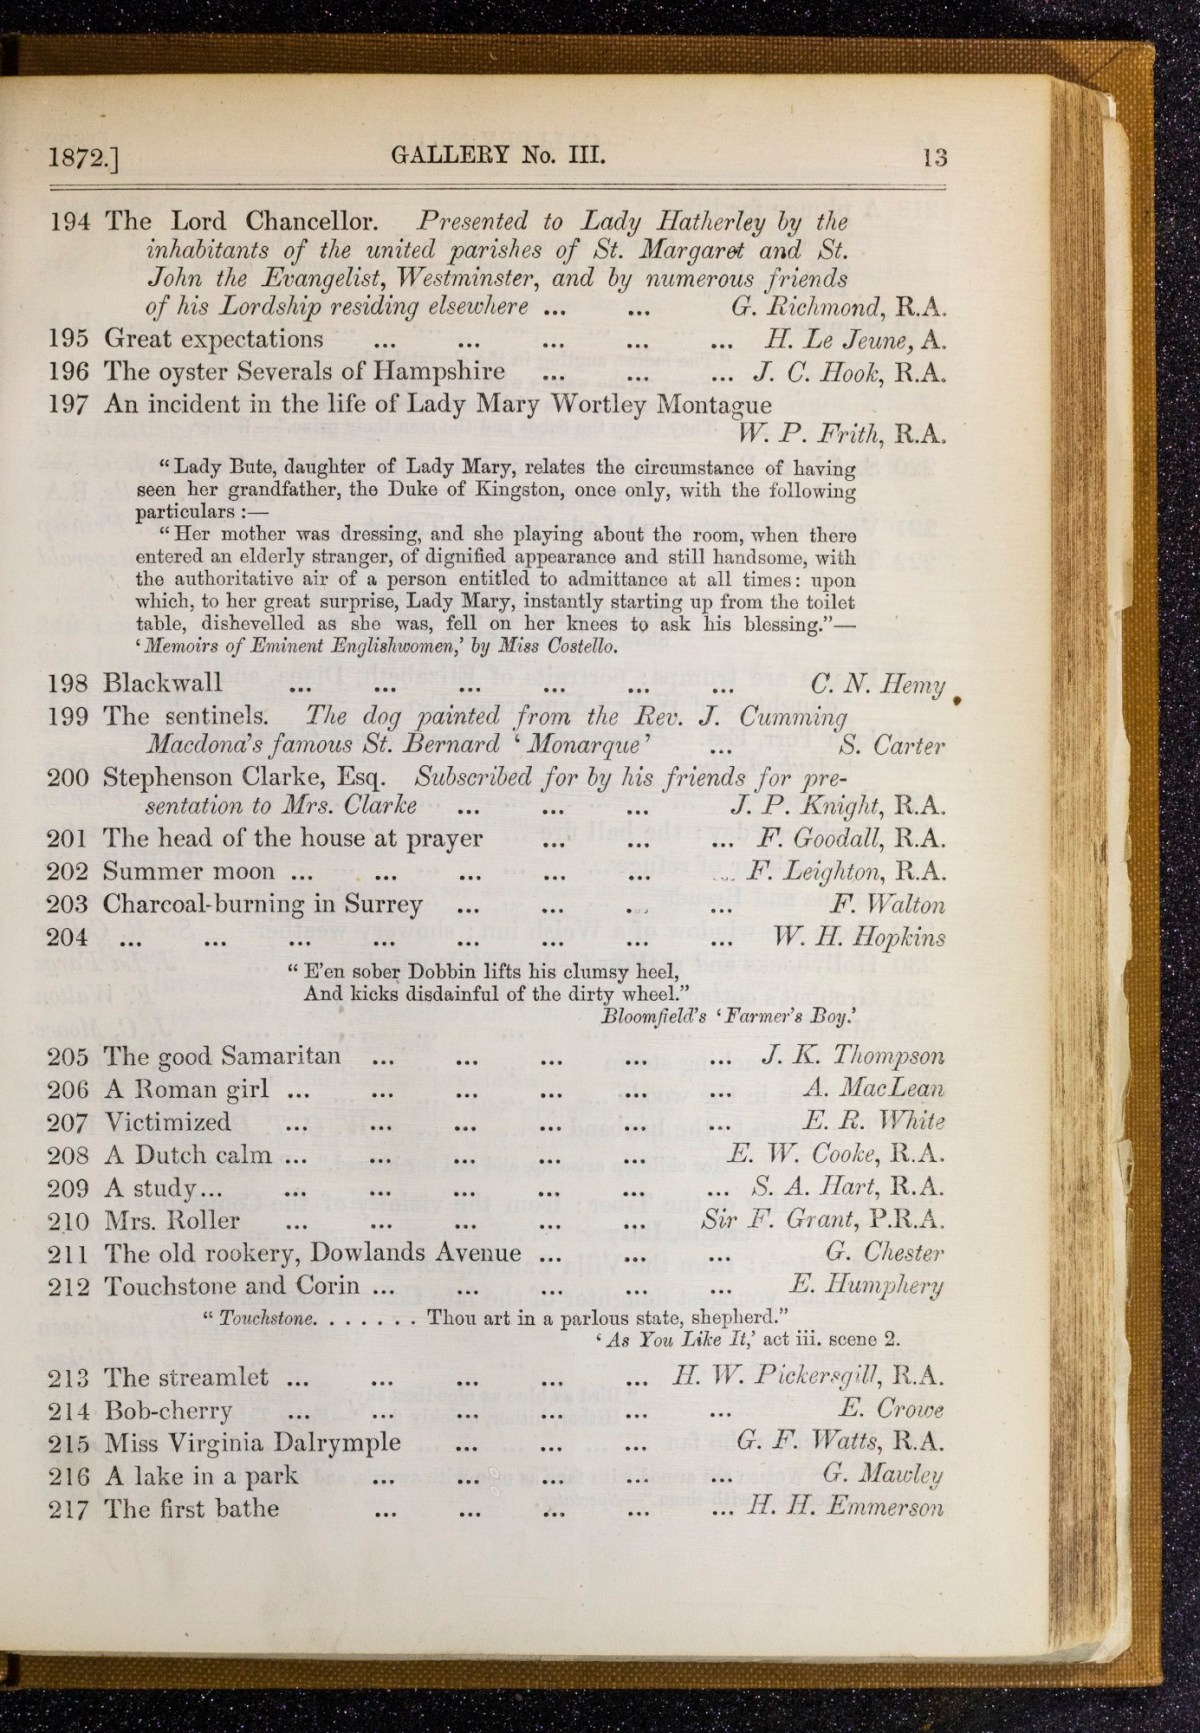 1872.] GALLERY No. III. 13
194 The Lord Chancellor. Presented to Lady Hatherley by the
inhabitants of the united parishes of St. Margaret and St.
John the Evangelist, Westminster, and by numerous friends
of his Lordship residing elsewhere ... ... G. Richmond, R.A.
195 Great expectations ... ... ... ... ... H. Le Jeune, A.
196 The oyster Severals of Hampshire ... ... ... J. C. Hook, R.A.
197 An incident in the life of Lady Mary Wortley Montague
W. P. Frith, R.A.
“Lady Bute, daughter of Lady Mary, relates the circumstance of having
seen her grandfather, the Duke of Kingston, once only, with the following
particulars :—
“Her mother was dressing, and she playing about the room, when there
entered an elderly stranger, of dignified appearance and still handsome, with
the authoritative air of a person entitled to admittance at all times: upon
which, to her great surprise, Lady Mary, instantly starting up from the toilet
table, dishevelled as she was, fell on her knees to ask his blessing.”—
‘Memoirs of Eminent Englishwomen,’ by Miss Costello.
198 Blackwall ... ... ... ... ... ... C. N. Hemy
199 The sentinels. The dog painted from the Rev. J. Cumming
Macdona's famous St. Bernard ‘Monarque’ ... S. Carter
200 Stephenson Clarke, Esq. Subscribed for by his friends for pre-
sentation to Mrs. Clarke ... ... ... J. P. Knight, R.A.
201 The head of the house at prayer ... ... ... F. Goodall, R.A.
202 Summer moon ... ... ... ... ... ... F. Leighton, R.A.
203 Charcoal-burning in Surrey ... ... ... ... F. Walton
204 ... ... ... ... ... ... ... ... W. H. Hopkins
“E'en sober Dobbin lifts his clumsy heel,
And kicks disdainful of the dirty wheel.”
Bloomfield's ‘Farmer's Boy.’
205 The good Samaritan ... ... ... ... ... J. K. Thompson
206 A Roman girl ... ... ... ... ... ... A. MacLean
207 Victimized ... ... ... ... ... ... E. R. White
208 A Dutch calm ... ... ... ... ... E. W. Cooke, R.A.
209 A study... ... ... ... ... ... ... S. A. Hart, R.A.
210 Mrs. Roller ... ... ... ... ... Sir F. Grant, P.R.A.
211 The old rookery, Dowlands Avenue ... ... ... G. Chester
212 Touchstone and Corin ... ... ... ... ... E. Humphery
“Touchstone. . . . . . . Thou art in a parlous state, shepherd.”
‘As You Like It,’ act iii. scene 2.
213 The streamlet ... ... ... ... ... H. W. Pickersgill, R.A.
214 Bob-cherry ... ... ... ... ... ... E. Crowe
215 Miss Virginia Dalrymple ... ... ... G. F. Watts, R.A.
216 A lake in a park ... ... ... ... ... G. Mawley
217 The first bathe ... ... ... ... ... H. H. Emmerson